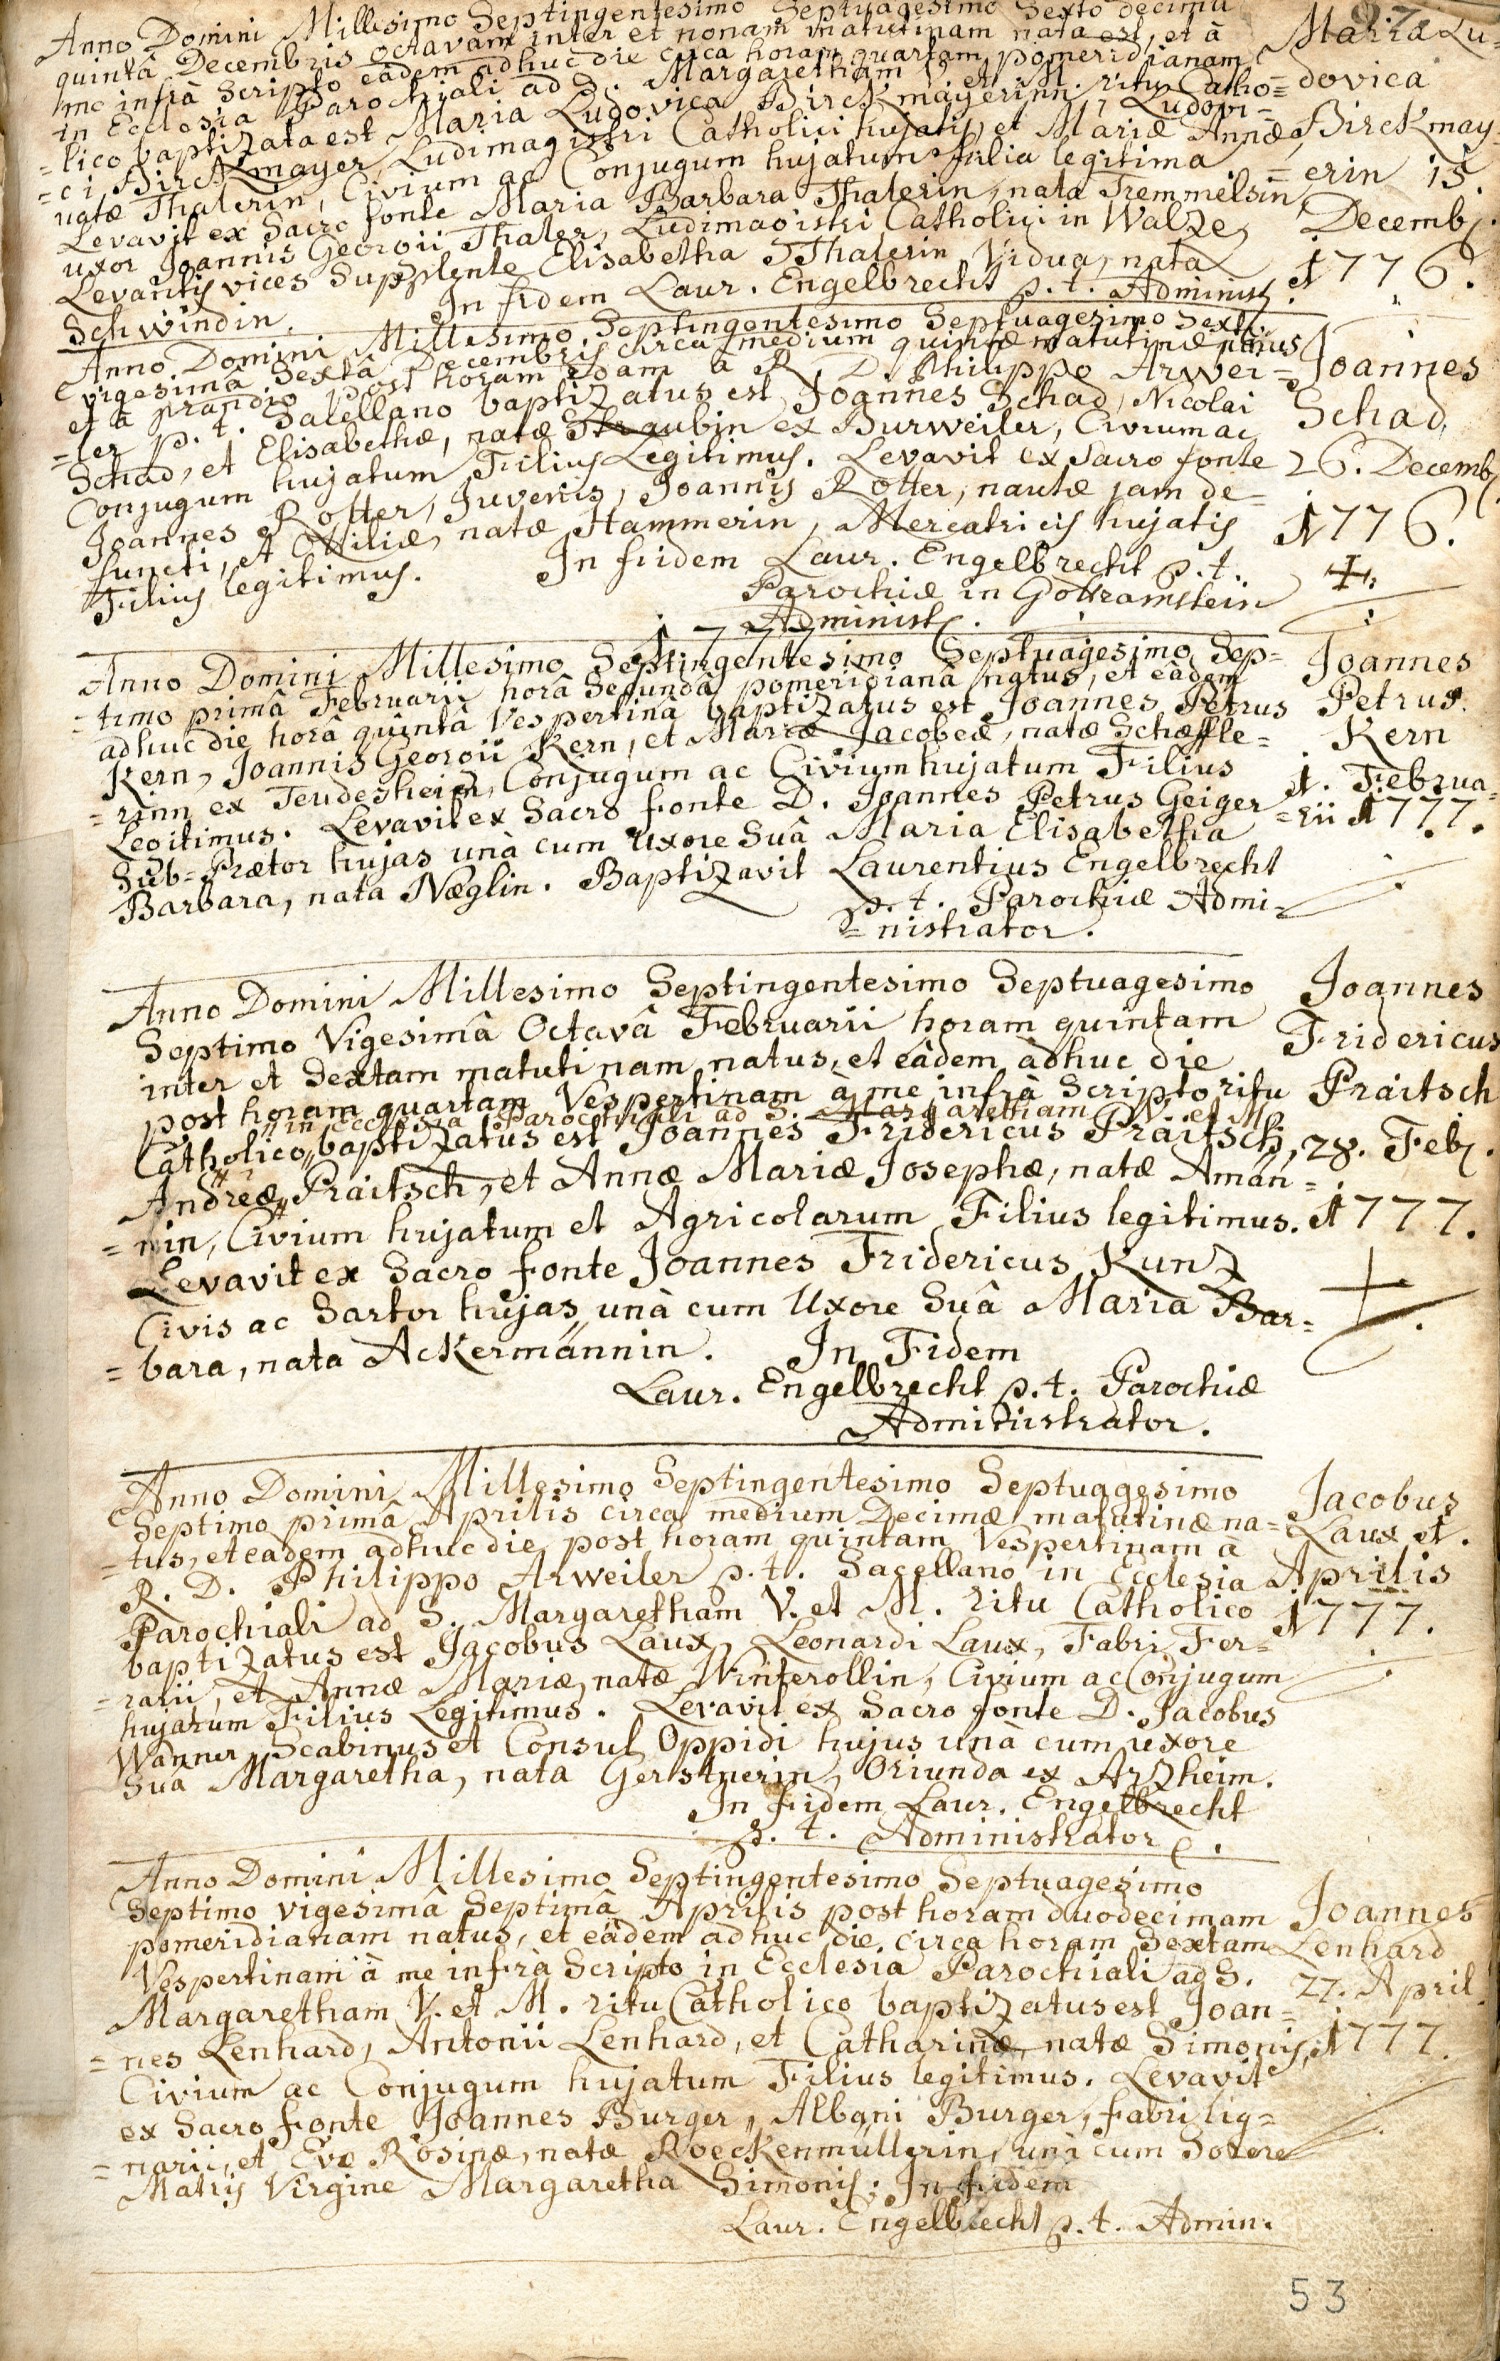 97.
Anno Domini Millesimo Septingentesimo Septuagesimo Sexto decimâ
quintâ Decembris octavam inter et nonam matutinam nata est, et à
me infrà Scripto eâdem adhuc die circa horam quartam pomeridianam
in Ecclesia Parochiali ad S. Margaretham V. et M. ritu Catho=
=lico baptizata est Maria Ludovica Birckmayerinn, Ludovi=
=ci Birckmayer, Ludimagistri Catholici hujatis, et Mariæ Annæ,
natæ Thalerin, Civium ac Conjugum hujatum filia legitima
Levavit ex Sacro fonte Maria Barbara Thalerin, nata Tremmelsin
uxor Joannis Georgii Thaler, Ludimagistri Catholici in Walze,
Levantis vices Supplente Elisabetha Thalerin Vidua, nata
Schwindin. In fidem Laur. Engelbrecht p. t. Administ.
Maria Lu=
dovica
Birckmay
=erin 15.
Decemb.
1776.
Anno Domini Millesimo Septingentesimo Septuagesimo Sexto
vigesimâ Sextâ Decembris circa medium quintæ matutinæ natus
et à prandio post horam 2dam à R. D. Philippo Arwei=
=ler p. t. Sacellano baptizatus est Joannes Schad, Nicolai
Schad, et Elisabethæ, natæ Straubin ex Burweiler, Civium ac
Conjugum hujatum Filius Legitimus. Levavit ex Sacro fonte
Joannes Rotter, Juvenis, Joannis Rotter, nautæ jam de=
functi, et Ottiliæ, natæ Hammerin, Mercatricis hujatis
Filius legitimus. In fidem Laur. Engelbrecht p. t.
Parochiæ in Gottramstein
Administ.
Joannes
Schad,
26. Decemb.
1776.
1777
Anno Domini Millesimo Septingentesimo Septuagesimo Sep=
=timo primâ Februarii horâ Secundâ pomeridianâ natus, et eâdem
adhuc die horâ quintâ Vespertinâ baptizatus est Joannes Petrus
Kern, Joannis Georgii Kern, et Mariæ Jacobeæ, natæ Schæffle=
=rinn ex Teudesheim, Conjugum ac Civium hujatum Filius
Legitimus. Levavit ex Sacro fonte D. Joannes Petrus Geiger
Sub=Prætor hujas unà cum Uxore Suâ Maria Elisabetha
Barbara, nata Næglin. Baptizavit Laurentius Engelbrecht
p. t. Parochiæ Admi=
=nistrator.
Joannes
Petrus
Kern
1. Februa=
=rii 1777.
Anno Domini Millesimo Septingentesimo Septuagesimo
Septimo Vigesimâ Octavâ Februarii horam quintam
inter et Sextam matutinam natus, et eâdem àdhuc die
post horam quartam Vespertinam à me infrà Scripto ritu
in Ecclesia Parochiali ad S. Margaretham V. et M.
Catholico baptizatus est Joannes Fridericus Präitsch,
Andreæ Präitsch, et Annæ Mariæ Josephæ, natæ Amän=
=nin, Civium hujatum et Agricolarum Filius legitimus.
Levavit ex Sacro fonte Joannes Fridericus Kunz
Civis ac Sartor hujas, unà cum Uxore Suâ Maria Bar=
=bara, nata Ackermännin. In Fidem
Laur. Engelbrecht p. t. Parochiæ
Administrator.
Joannes
Fridericus
Präitsch
28. Feb.
1777.
Anno Domini Millesimo Septingentesimo Septuagesimo
Septimo primâ Aprilis circa medium Decimæ matutinæ na=
=tus, et eadem adhuc die post horam quintam Vespertinam à
R. D. Philippo Arweiler p. t. Sacellano in Ecclesia
Parochiali ad S. Margaretham V. et M. ritu Catholico
baptizatus est Jacobus Laux, Leonardi Laux, Fabri Fer=
=rarii, et Annæ Mariæ, natæ Winterollin, Civium ac Conjugum
hujatum Filius Legitimus. Levavit ex Sacro fonte D. Jacobus
Wanner Scabinus et Consul Oppidi hujus unà cum uxore
Suâ Margaretha, nata Gerstnerin, Oriunda ex Arzheim.
In fidem Laur. Engelbrecht
p. t. Administrator
Jacobus
Laux 1.
Aprilis
1777.
Anno Domini Millesimo Septingentesimo Septuagesimo
Septimo vigesimâ Septimâ Aprilis post horam duodecimam
pomeridianam natus, et eâdem adhuc die circa horam Sextam
Vespertinam à me infrà Scripto in Ecclesia Parochiali ad S.
Margaretham V. et M. ritu Catholico baptizatus est Joan=
=nes Lenhard, Antonii Lenhard, et Catharinæ, natæ Simonis,
Civium ac Conjugum hujatum Filius legitimus. Levavit
ex Sacro fonte Joannes Burger, Albani Burger, fabri lig=
=narii, et Evæ Rosinæ, natæ Roeckenmüllerin, unà cum Sorore
Matris Virgine Margaretha Simonis. In fidem
Laur. Engelbrecht p. t. Admin.
Joannes
Lenhard
27. April
1777.
53